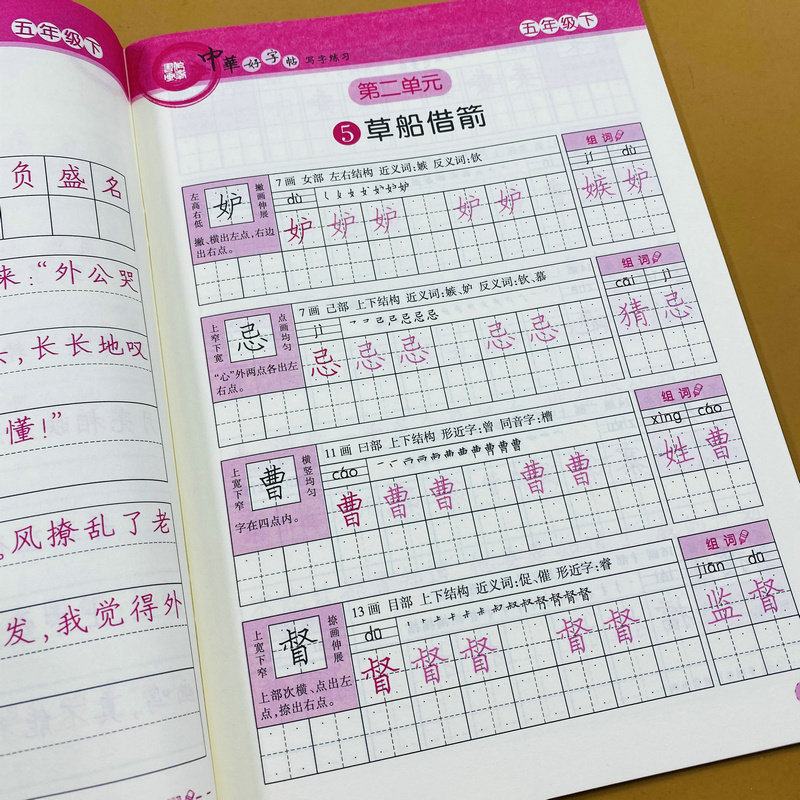 五年级下
负 盛 名
来:“外公哭
,长长地叹
懂!”
风撩乱了老
发,我觉得外
五年级下
中華好字帖 写字练习
第二单元
5 草船借箭
7画 女部 左右结构 近义词:嫉 反义词:钦
左高右低 妒 撇画伸展
dù
撇、横出左点,右边出右点。
妒 妒 妒 妒 妒
组词
jí dù
嫉 妒
7画 己部 上下结构 近义词:嫉、妒 反义词:钦、慕
上窄下宽 忌 点画均匀
jì
“心”外两点各出左右点。
忌 忌 忌 忌 忌
组词
cāi jì
猜 忌
11画 曰部 上下结构 形近字:曾 同音字:槽
上宽下窄 曹 横竖均匀
cáo
字在四点内。
曹 曹 曹 曹 曹
组词
xìng cáo
姓 曹
13画 目部 上下结构 近义词:促、催 形近字:睿
上宽下窄 督 捺画伸展
dū
上部次横、点出左点,捺出右点。
督 督 督 督 督
组词
jiān dū
监 督